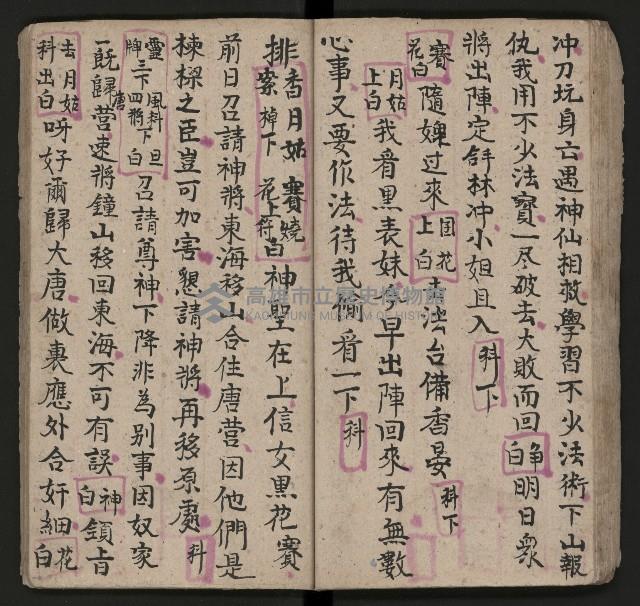 冲刀坑身亡遇神仙相救學習不少法術下山報
仇我用不少法寶一尽破去大敗而回 白 明日眾
將出陣定𦧲林冲小姐且入 科下
賽花白 隨婢过來 上白 法台備香晏 科下
月姑上白 我看黑表妹 早出陣回來有無數
心事又要作法待我偷看一下 科
排香案 月姑掉下 賽花上 燒符 白 神聖在上信女黑花賽
前日召請神將東海移山合住唐營因他們是
棟樑之臣豈可加害懇請神將再移原處 科
靈牌三下 風科下 四將下 旦白 召請尊神下降非為別事因奴家
一既歸唐營速將鐘山移回東海不可有誤 神白 領旨
去科 月姑出白 呀好爾歸大唐做裏應外合奸細 花白
高雄市立歷史博物館
KAOHSIUNG MUSEUM OF HISTORY